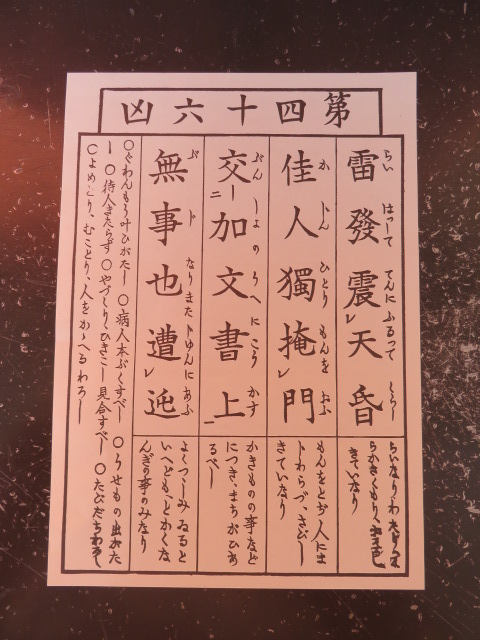 第四十六凶
雷發震天昏
らい はつして てんにふるつて くらし
らいなりわ
らかきくもり、
きていなり
佳人獨掩門
か じん ひとり もんを おふ
もんをとぢ人にま
じわらづ、さびし
きていなり
交加文書上
ぶん しよ の うへ に こう かす
かきものの事など
につき、まちがひあ
るべし
無事也遭迍
ぶ じ なり また じゆんに あふ
よくつゝしみゐると
いへども、とかくな
んぎの事のみなり
〇ぐわんもう叶ひがたし 〇病人本ぶくすべし 〇うせもの出がた
し 〇待人きたらず 〇やづくり、ひきこし見合すべし 〇たびだちわろし
〇よめとり、むことり、人をかゝへるわろし